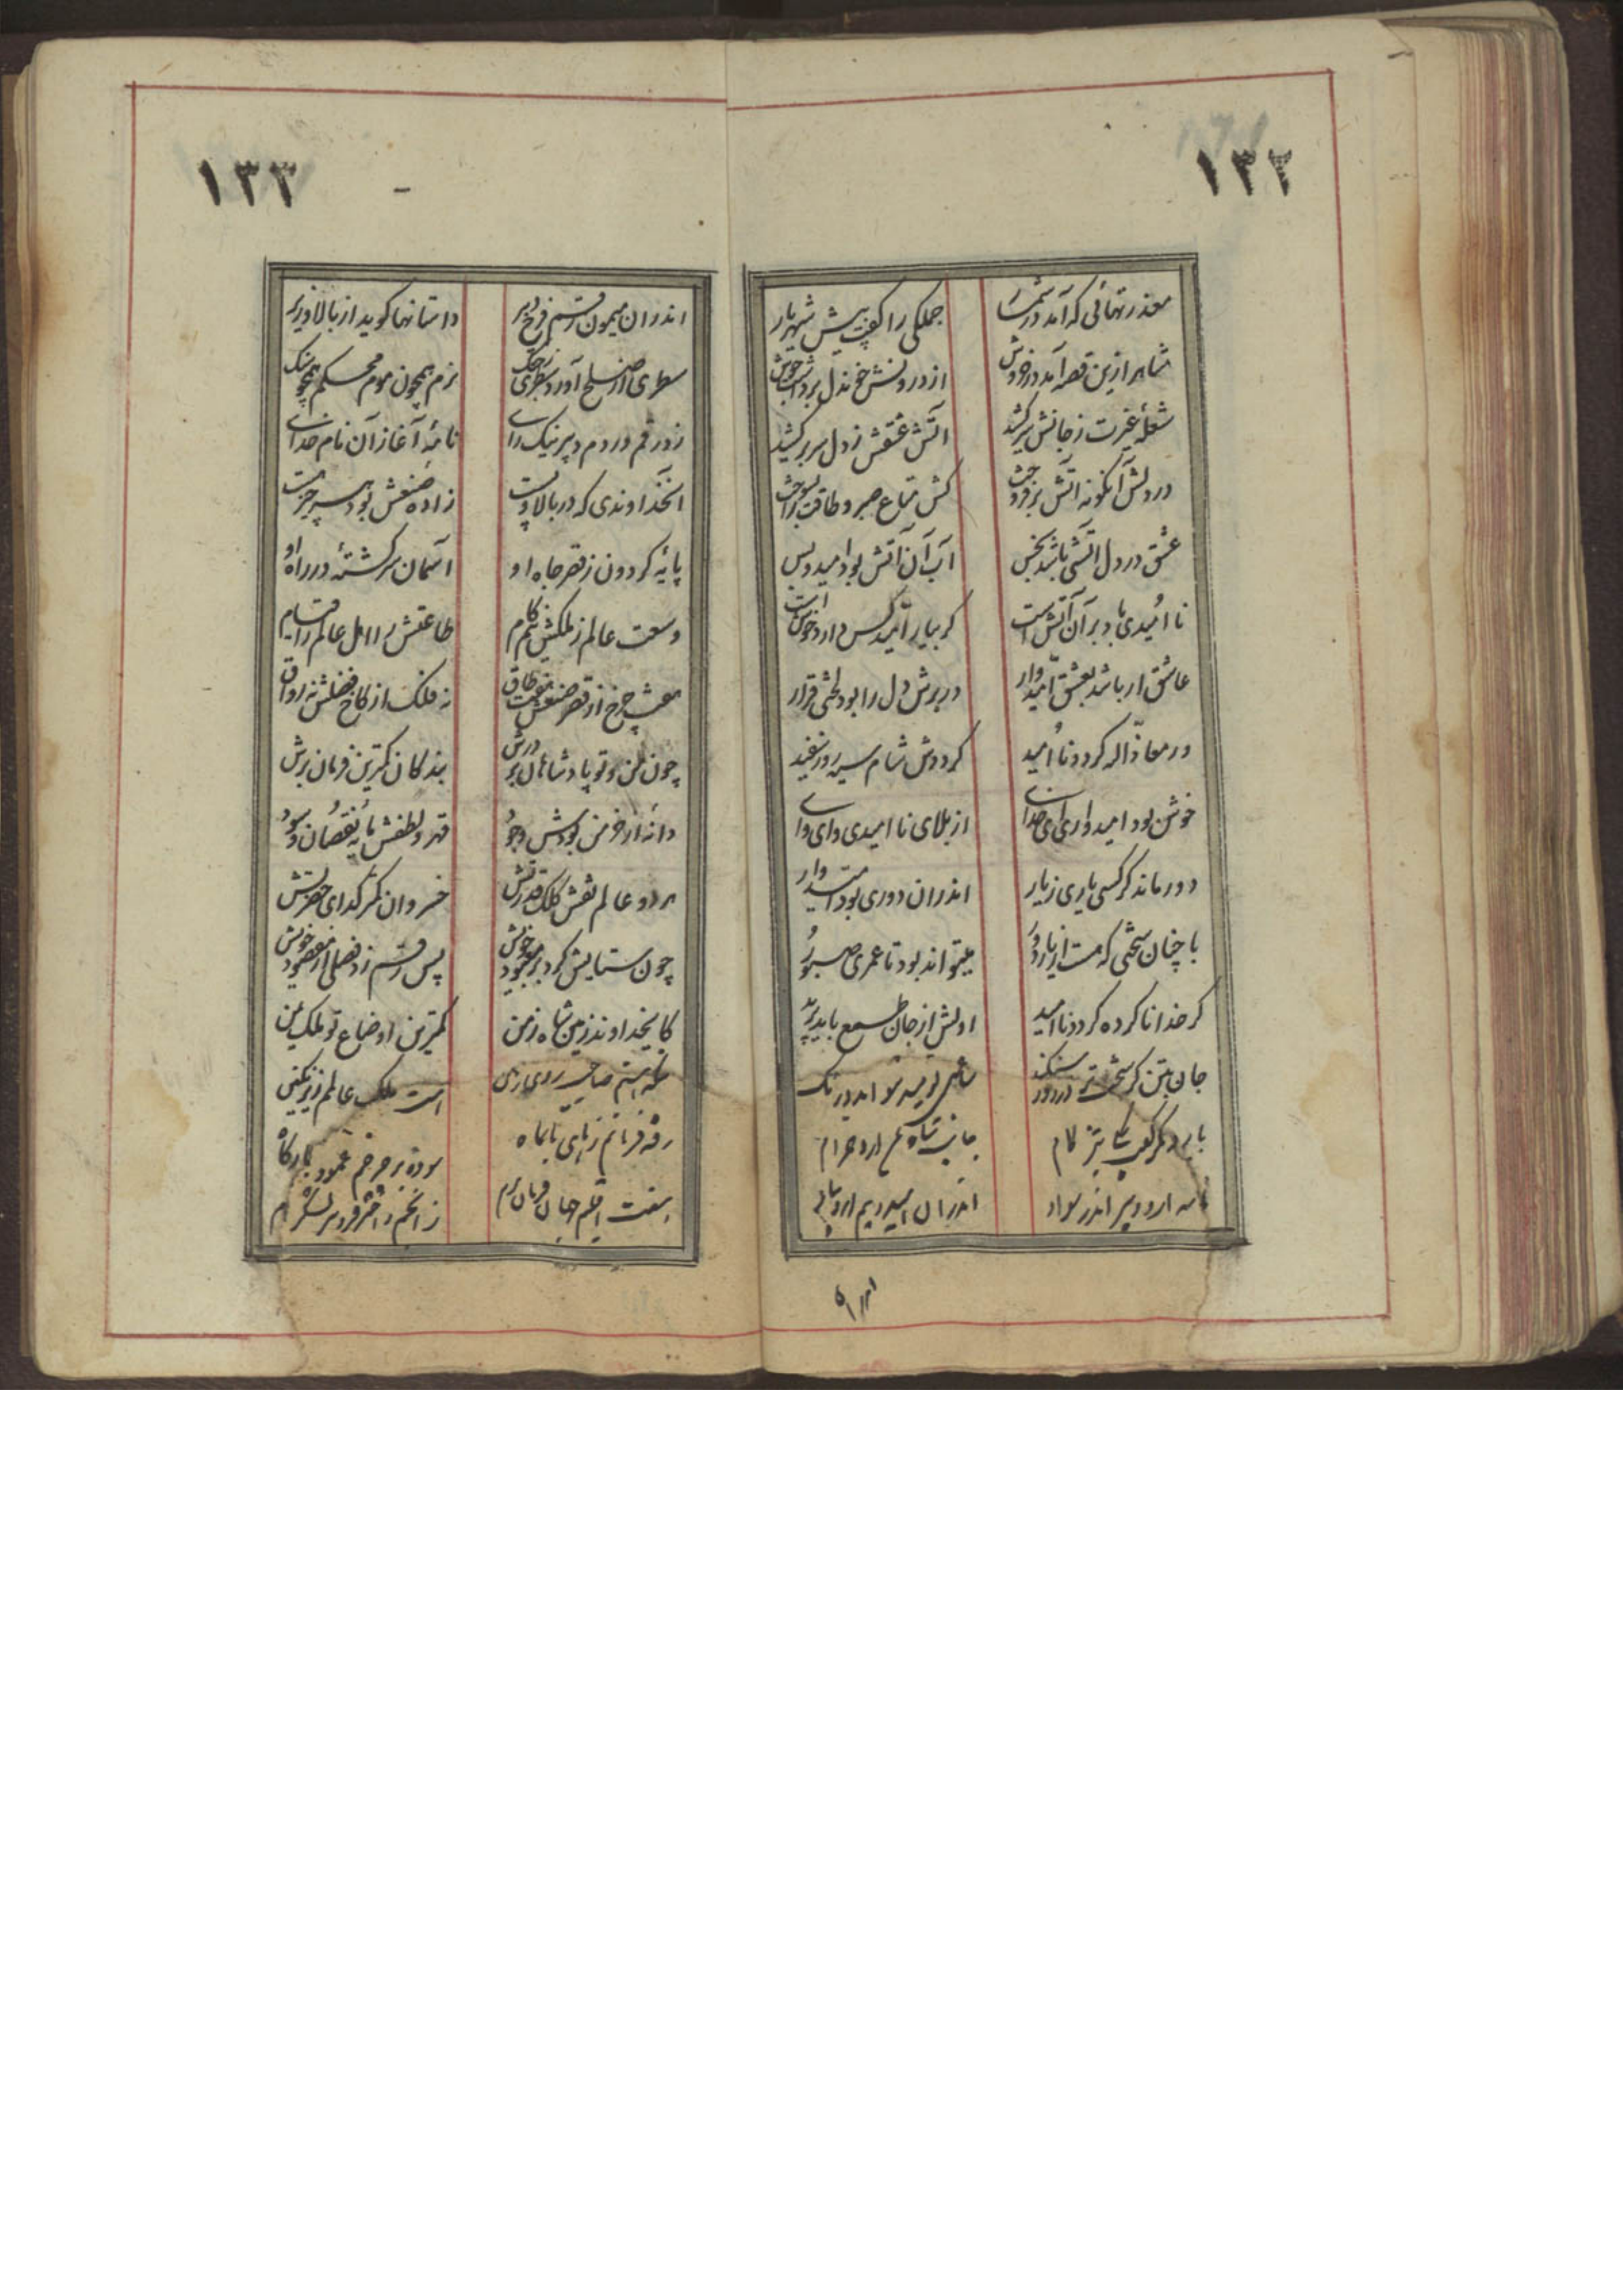 ١٣٢
معذرتهائی که آمد در شمار
جملگی را گفت پیش شهریار
شاهر ازین قصه آمد در خروش
از درونش خون دل برداشت جوش
شعلهٔ غیرت ز جانش سر کشید
آتش عشقش ز دل سر بر کشید
در دلش آنگونه آتش برفروخت
کش متاع صبر و طاقت را بسوخت
عشق در دل آتشی باشد بخس
آب آن آتش بود امید و بس
نا امیدی باد بر آن آتش است
گر بیار امید کس دارد خوش است
عاشق ار باشد بعشق امیدوار
در برش دل را بود لختی قرار
ور معاذ اله گردد نا امید
گرددش شام سیه روز سفید
خوش بود امیدواری ای خدای
از بلای نا امیدی وای وای
دور ماند گر کسی یاری ز یار
اندران دوری بود امیدوار
با چنان سختی که هست از یار دور
میتواند بود تا عمری صبور
گر خدا ناکرده گردد نا امید
اولش از جان طمع باید برید
جان بتن گر سخت تر
جانب شاه آرد خرام
اندران
١٣٣
اندران میمون رقم فرخ دبیر
داستانها گوید از بالا و زیر
سطری از صلح آورد سطری ز جنگ
نرم همچون موم محکم همچو سنگ
زد رقم در دم دبیر نیک رای
نامهٔ آغاز آن نام خدای
آنخداوندی که در بالا و پست
زادهٔ صنعش بود هر چیز هست
پایهٔ گردون ز قصر جاه او
آسمان سرگشتهٔ در راه او
وسعت عالم ز ملکش نیم گام
طاعتش را اهل عالم را قیام
هشت چرخ از قصر صنعش هفت طاق
نه فلک از کاخ فضلش نه رواق
چون من و تو پادشاهان بر درش
بندگان کمترین فرمان برش
دانهٔ از خرمن جودش وجود
قهر و لطفش مایهٔ نقصان و سود
هر دو عالم نقش کلک قدرتش
خسروان کمتر گدای حضرتش
چون ستایش کرد بر معبود خویش
پس رقم زد فصلی از مقصود خویش
کایخداوند زمین شاه زمن
کمترین اوضاع تو ملک یمن
منکه هستم صاحب روی زمین
هست ملک عالمم زیر نگین
رفته فرمانم ز ماهی تا بماه
سوده بر چرخم عمود بارگاه
هفت اقلیم جهان فرمان برم
ز انجم و اختر فزونتر لشکرم